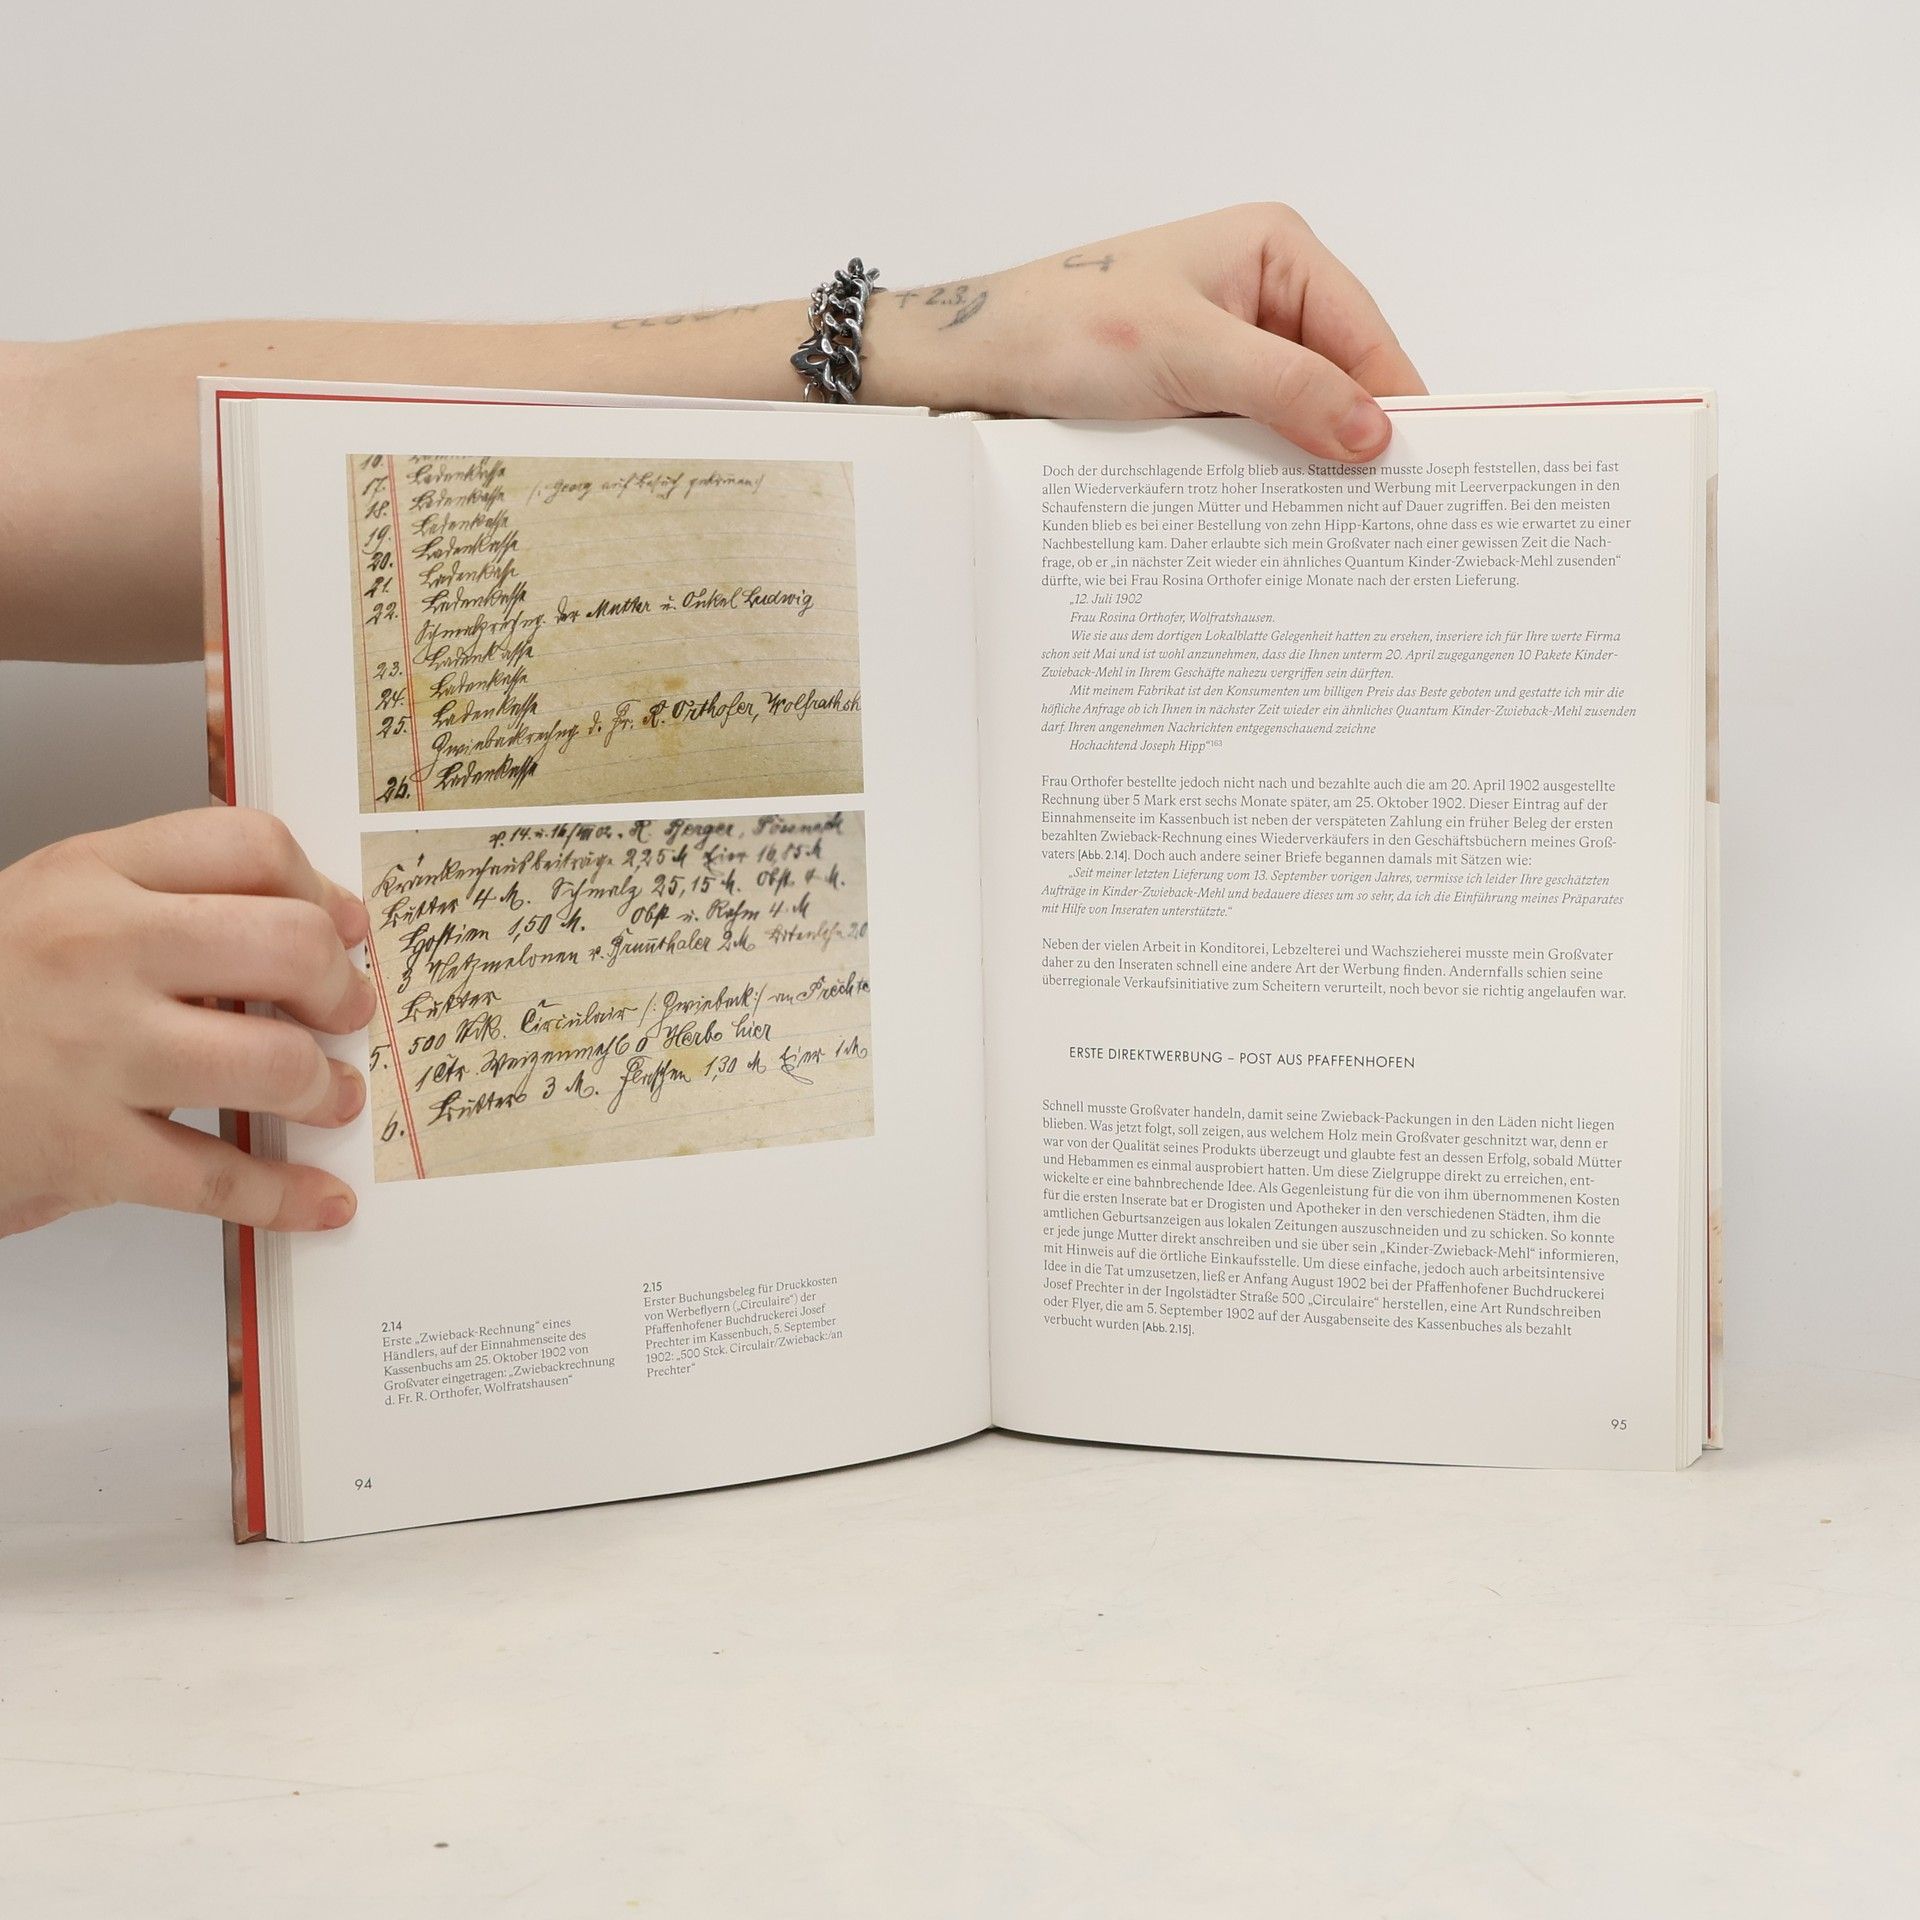 17. Ladenkasse
18. Ladenkasse
19. Ladenkasse
20. Ladenkasse
21. Ladenkasse
22. Ladenkasse
der Mutter u. Onkel Ludwig
23. Ladenkasse
24. Ladenkasse
25. Ladenkasse
Zwiebackrechng d. Fr. R. Orthofer, Wolfratsh
26. Ladenkasse
R. Berger,
Krankenhausbeiträge 2,25 M Eier 16,85 M
Butter 4 M. Schmalz 25,15 M. Obst 4 M.
Hostien 1,50 M. Obst u. Rahm 4 M
3 Netzmelonen v. 2 M
Butter
500 Stck. Circulair /: Zwieback :/ an Prechte
5. 1 Ctr. Weizenmehl 0 Herb hier
Butter 3 M. Flaschen 1,30 M Eier 1 M
6.
2.14
Erste „Zwieback-Rechnung“ eines
Händlers, auf der Einnahmenseite des
Kassenbuchs am 25. Oktober 1902 von
Großvater eingetragen: „Zwiebackrechnung
d. Fr. R. Orthofer, Wolfratshausen“
2.15
Erster Buchungsbeleg für Druckkosten
von Werbeflyern („Circulaire“) der
Pfaffenhofener Buchdruckerei Josef
Prechter im Kassenbuch, 5. September
1902: „500 Stck. Circulair/Zwieback:/an
Prechter“
94
Doch der durchschlagende Erfolg blieb aus. Stattdessen musste Joseph feststellen, dass bei fast
allen Wiederverkäufern trotz hoher Inseratkosten und Werbung mit Leerverpackungen in den
Schaufenstern die jungen Mütter und Hebammen nicht auf Dauer zugriffen. Bei den meisten
Kunden blieb es bei einer Bestellung von zehn Hipp-Kartons, ohne dass es wie erwartet zu einer
Nachbestellung kam. Daher erlaubte sich mein Großvater nach einer gewissen Zeit die Nach-
frage, ob er „in nächster Zeit wieder ein ähnliches Quantum Kinder-Zwieback-Mehl zusenden“
dürfte, wie bei Frau Rosina Orthofer einige Monate nach der ersten Lieferung.
„12. Juli 1902
Frau Rosina Orthofer, Wolfratshausen.
Wie sie aus dem dortigen Lokalblatte Gelegenheit hatten zu ersehen, inseriere ich für Ihre werte Firma
schon seit Mai und ist wohl anzunehmen, dass die Ihnen unterm 20. April zugegangenen 10 Pakete Kinder-
Zwieback-Mehl in Ihrem Geschäfte nahezu vergriffen sein dürften.
Mit meinem Fabrikat ist den Konsumenten um billigen Preis das Beste geboten und gestatte ich mir die
höfliche Anfrage ob ich Ihnen in nächster Zeit wieder ein ähnliches Quantum Kinder-Zwieback-Mehl zusenden
darf. Ihren angenehmen Nachrichten entgegenschauend zeichne
Hochachtend Joseph Hipp“163
Frau Orthofer bestellte jedoch nicht nach und bezahlte auch die am 20. April 1902 ausgestellte
Rechnung über 5 Mark erst sechs Monate später, am 25. Oktober 1902. Dieser Eintrag auf der
Einnahmenseite im Kassenbuch ist neben der verspäteten Zahlung ein früher Beleg der ersten
bezahlten Zwieback-Rechnung eines Wiederverkäufers in den Geschäftsbüchern meines Groß-
vaters [Abb. 2.14]. Doch auch andere seiner Briefe begannen damals mit Sätzen wie:
„Seit meiner letzten Lieferung vom 13. September vorigen Jahres, vermisse ich leider Ihre geschätzten
Aufträge in Kinder-Zwieback-Mehl und bedauere dieses um so sehr, da ich die Einführung meines Präparates
mit Hilfe von Inseraten unterstützte.“
Neben der vielen Arbeit in Konditorei, Lebzelterei und Wachszieherei musste mein Großvater
daher zu den Inseraten schnell eine andere Art der Werbung finden. Andernfalls schien seine
überregionale Verkaufsinitiative zum Scheitern verurteilt, noch bevor sie richtig angelaufen war.
ERSTE DIREKTWERBUNG – POST AUS PFAFFENHOFEN
Schnell musste Großvater handeln, damit seine Zwieback-Packungen in den Läden nicht liegen
blieben. Was jetzt folgt, soll zeigen, aus welchem Holz mein Großvater geschnitzt war, denn er
war von der Qualität seines Produkts überzeugt und glaubte fest an dessen Erfolg, sobald Mütter
und Hebammen es einmal ausprobiert hatten. Um diese Zielgruppe direkt zu erreichen, ent-
wickelte er eine bahnbrechende Idee. Als Gegenleistung für die von ihm übernommenen Kosten
für die ersten Inserate bat er Drogisten und Apotheker in den verschiedenen Städten, ihm die
amtlichen Geburtsanzeigen aus lokalen Zeitungen auszuschneiden und zu schicken. So konnte
er jede junge Mutter direkt anschreiben und sie über sein „Kinder-Zwieback-Mehl“ informieren,
mit Hinweis auf die örtliche Einkaufsstelle. Um diese einfache, jedoch auch arbeitsintensive
Idee in die Tat umzusetzen, ließ er Anfang August 1902 bei der Pfaffenhofener Buchdruckerei
Josef Prechter in der Ingolstädter Straße 500 „Circulaire“ herstellen, eine Art Rundschreiben
oder Flyer, die am 5. September 1902 auf der Ausgabenseite des Kassenbuches als bezahlt
verbucht wurden [Abb. 2.15].
95